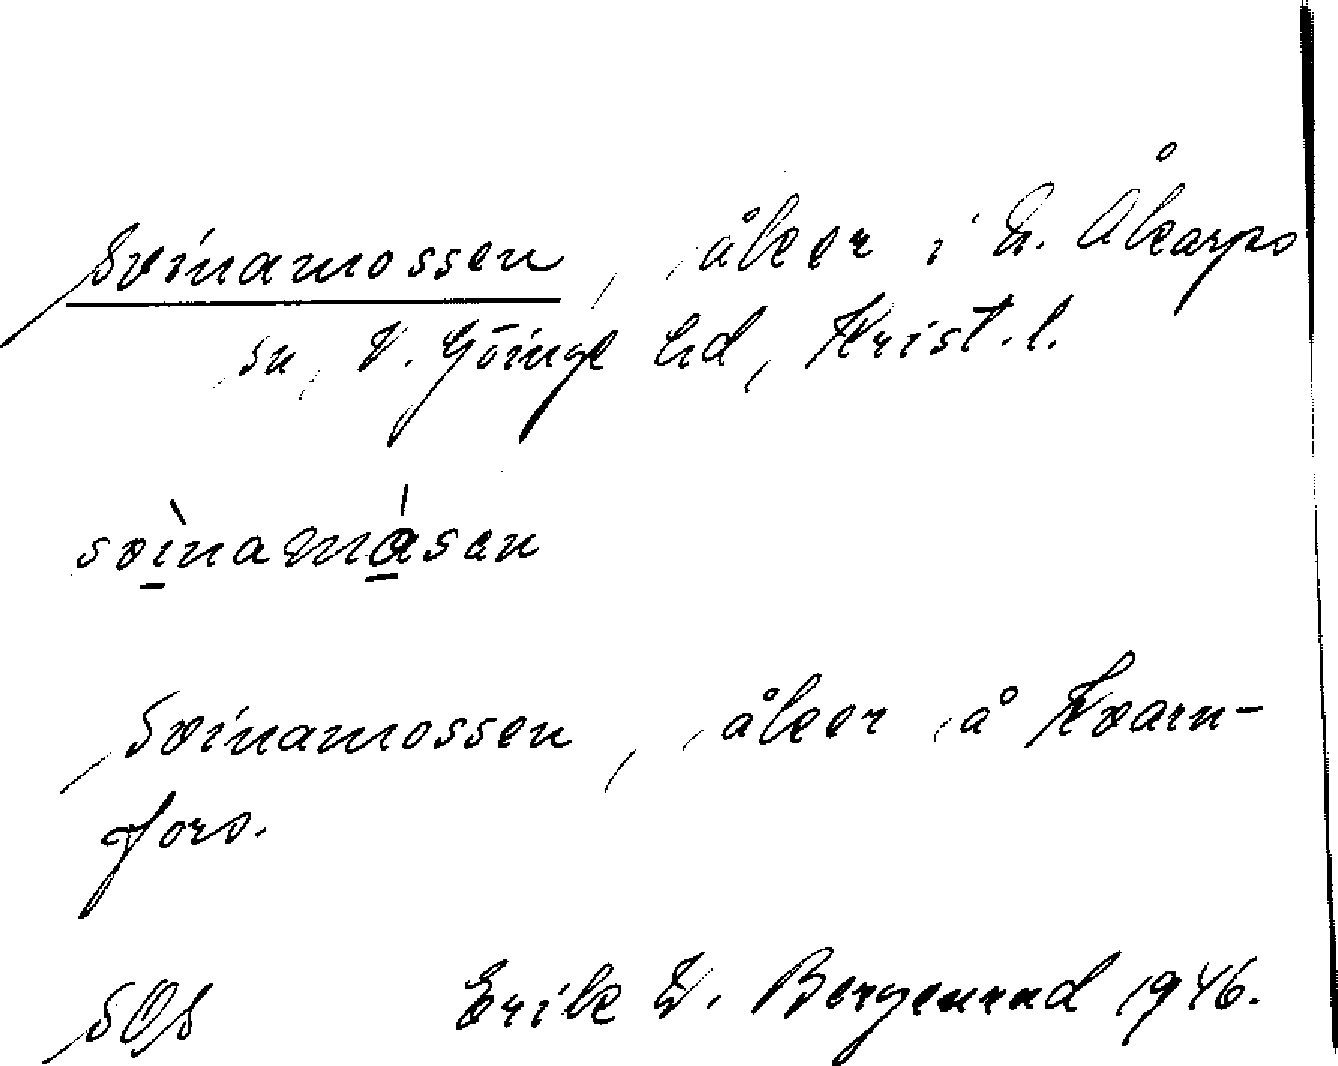 Svinamossen, åker i N. Åkarps
sn, V. Göinge hd, Krist. l.
svìnamåsen
Svinamossen, åker å Kvarn-
fors.
SOS Erik W. Bergenrud 1946.